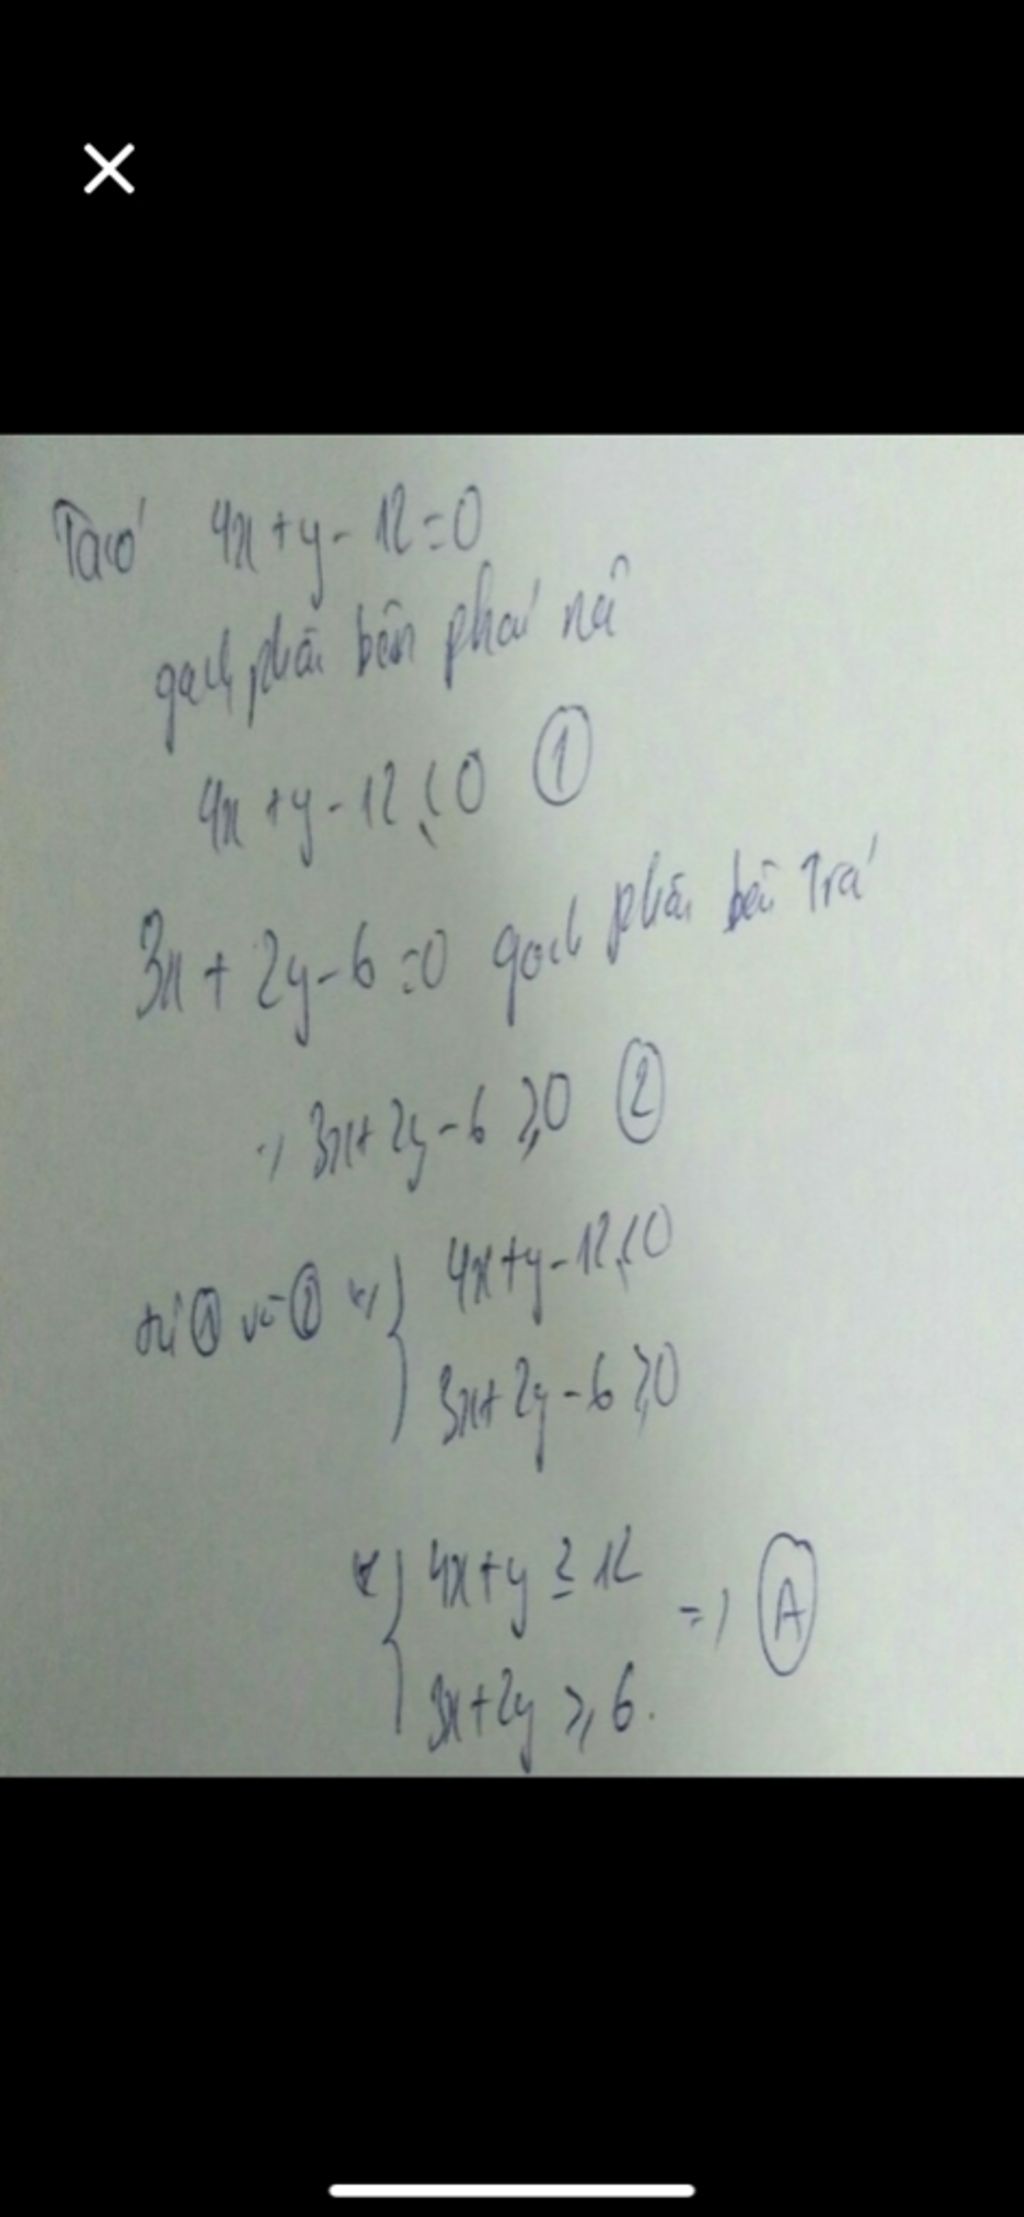 Ta có 4x + y - 12 = 0
gạch phần bên phải nên
4x + y - 12 ≤ 0 ①
3x + 2y - 6 = 0 gạch phần bên trái
=> 3x + 2y - 6 ≥ 0 ②
từ ① và ② => { 4x + y - 12 ≤ 0
3x + 2y - 6 ≥ 0
{ 4x + y ≥ 12 => Ⓐ
3x + 2y ≥ 6.